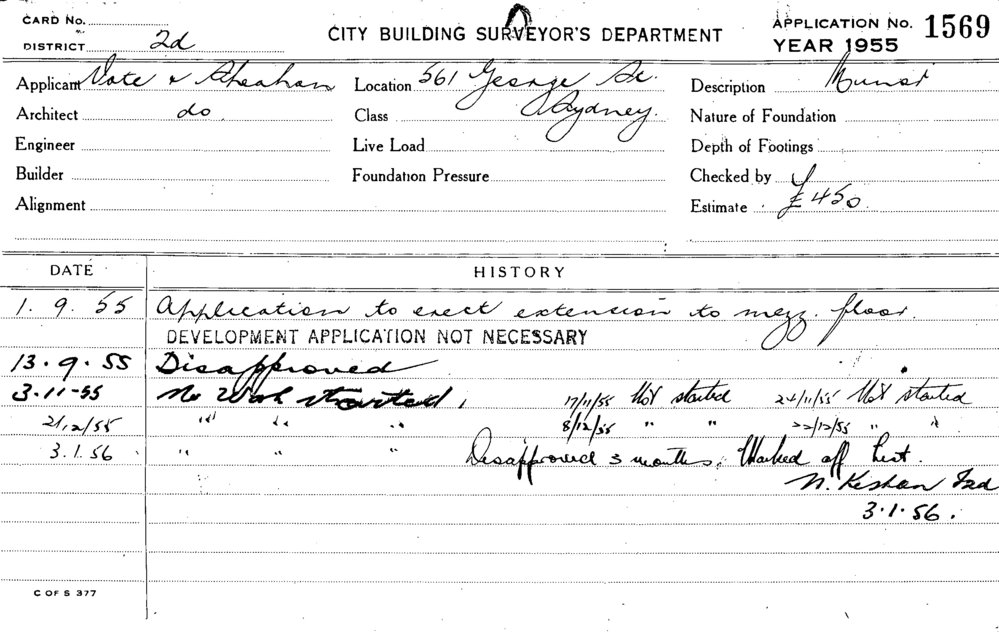 CARD No.
DISTRICT 2d
CITY BUILDING SURVEYOR'S DEPARTMENT
APPLICATION No. 1569
YEAR 1955
Applicant Vote & Sheahan Location 561 George St. Description
Architect do Class Sydney. Nature of Foundation
Engineer Live Load Depth of Footings
Builder Foundation Pressure Checked by
Alignment Estimate £450
DATE HISTORY
1. 9. 55 Application to erect extension to mezz. floor.
DEVELOPMENT APPLICATION NOT NECESSARY
13. 9. 55 Disapproved
3. 11-55 No Work started, 17/11/55 Not started 24/11/55 Not started
" " " 8/12/55 " " 22/12/55 " "
3.1.56 " " " Disapproved 3 months. Marked off List.
3.1.56.
C OF S 377